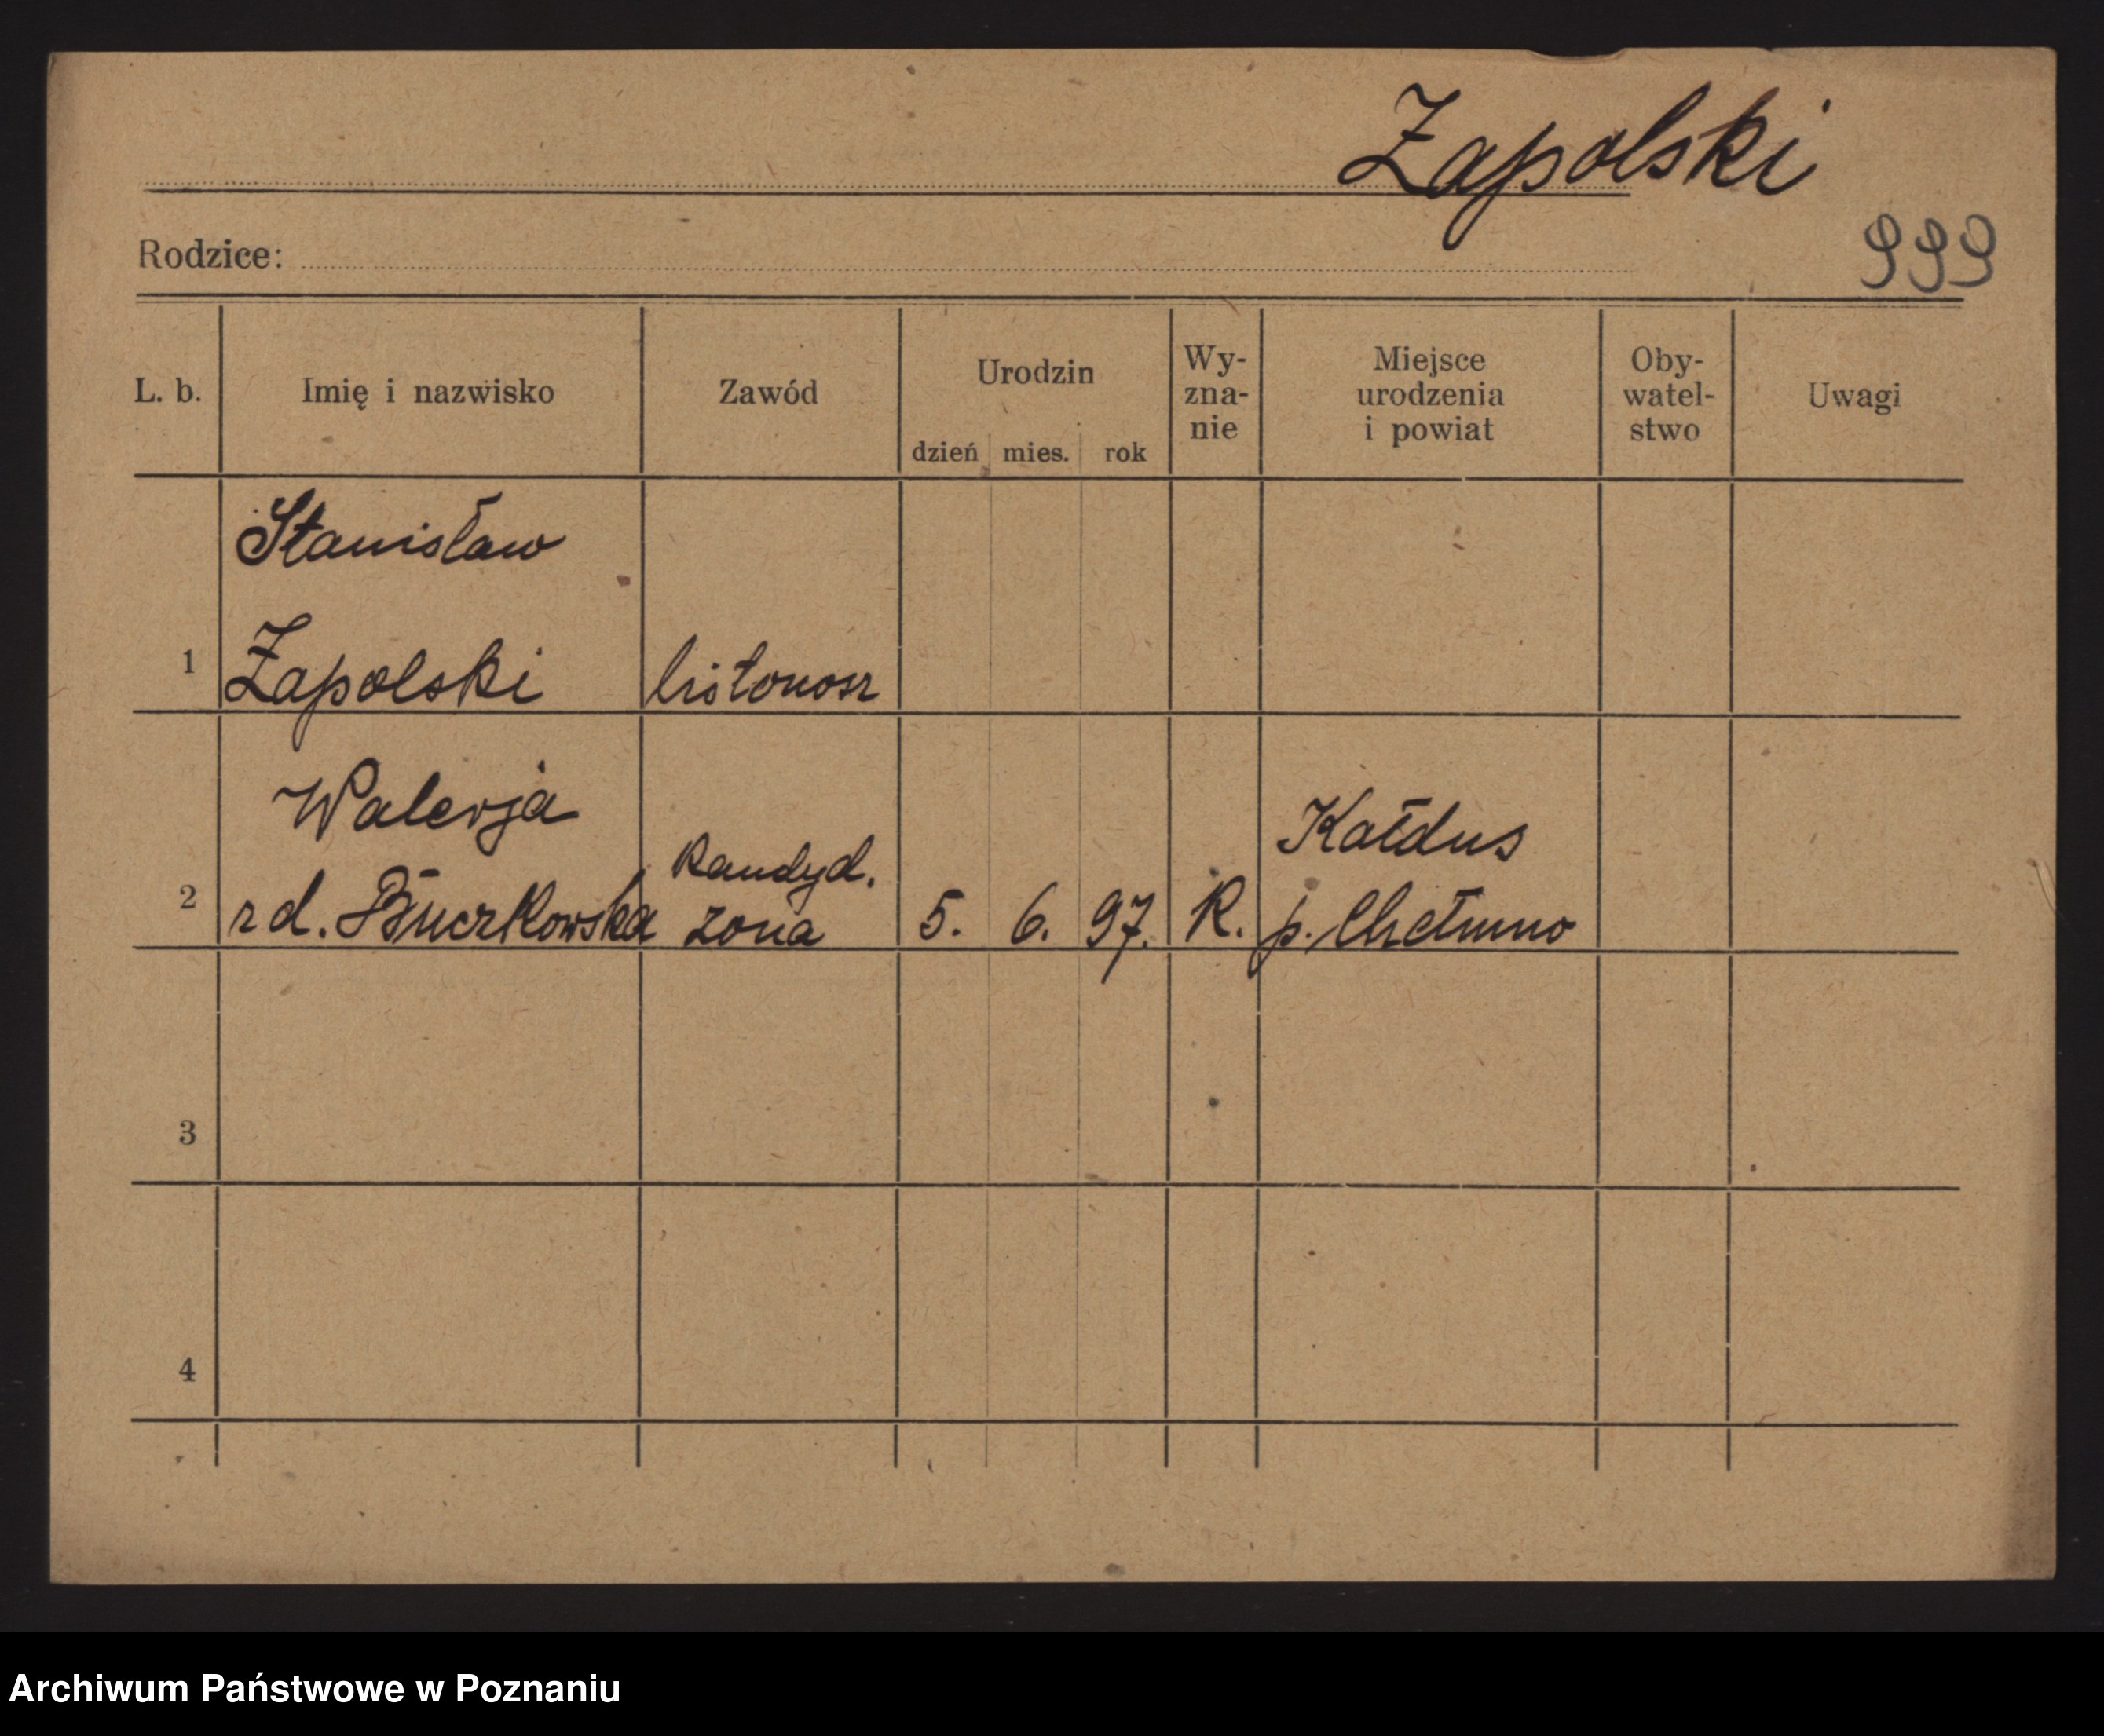 Zapolski
Rodzice:
999
L. b. Imię i nazwisko Zawód Urodzin dzień mies. rok Wy-zna-nie Miejsce urodzenia i powiat Oby-watel-stwo Uwagi
Stanisław
1 Zapolski listonosz
Walerja kandyd. Kałdus
2 zd. Buczkowska żona 5. 6. 97. K. p. Chełmno
3
4
Archiwum Państwowe w Poznaniu